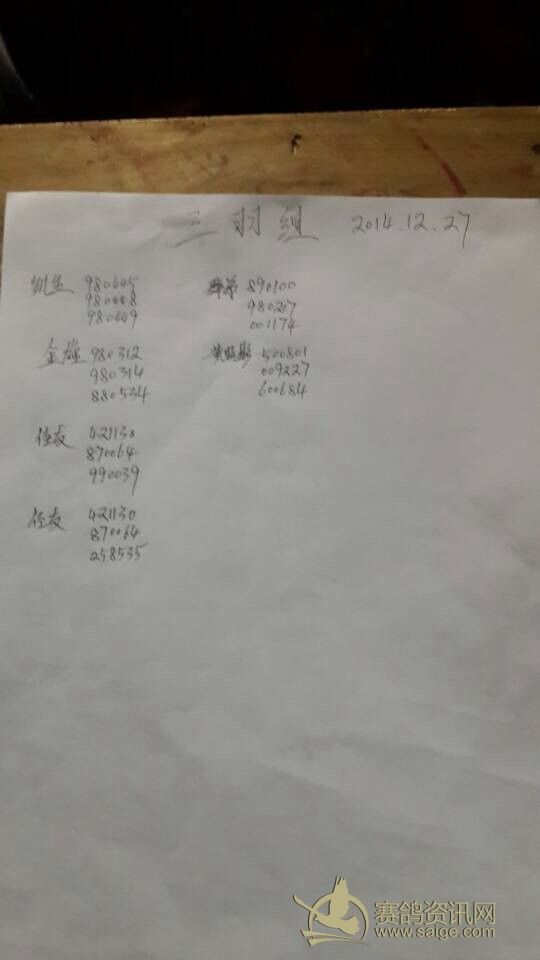 三羽组 2014.12.27
凯生 980645
980648
980649
金雄 980312
980314
880534
佳友 421130
870064
990039
佳友 421130
870064
258535
890100
980267
001174
500801
009227
600684
赛鸽资讯网
www.saige.com